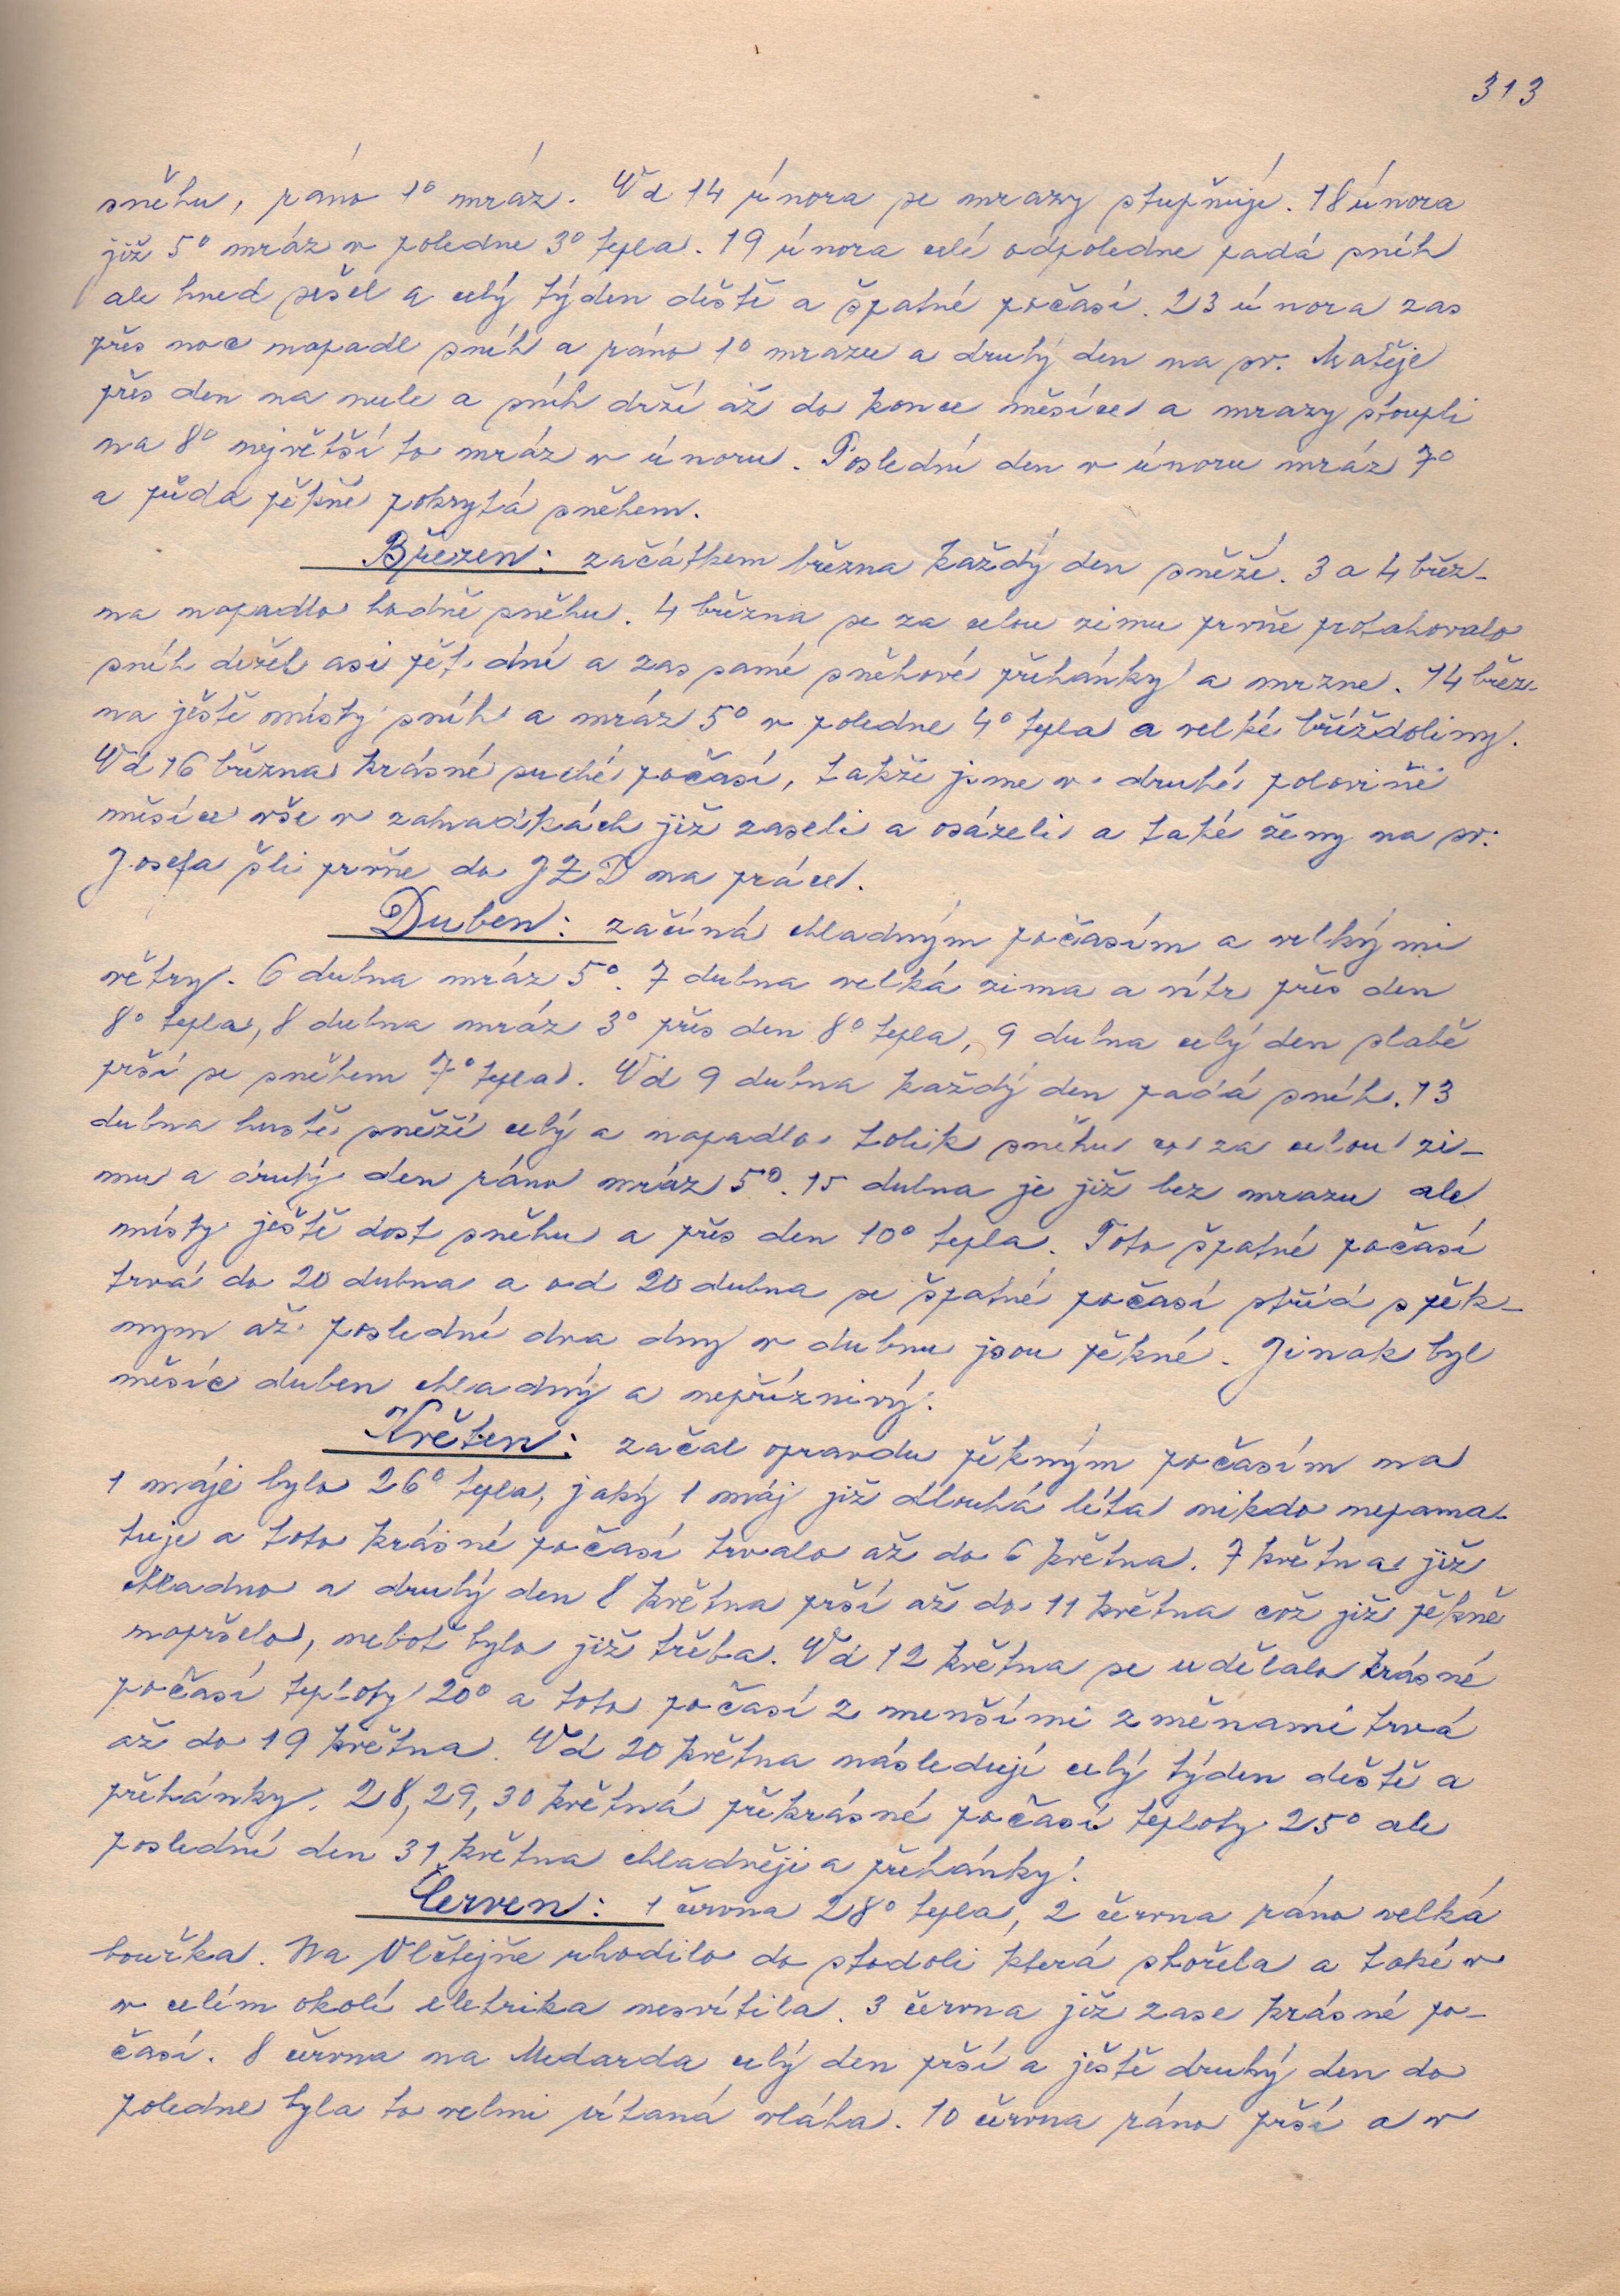 313
sněhu, ráno 1° mráz. Od 14 února se mrazy stupňují. 18 února
již 5° mráz v poledne 3° tepla. 19 února celé odpoledne padá sníh
ale hned sešel a celý týden deště a špatné počasí. 23 února zas
přes noc napadl sníh a ráno 1° mrazu a druhý den na sv. Matěje
přes den na nule a sníh drží až do konce měsíce a mrazy stoupli
na 8° největší to mráz v únoru. Poslední den v únoru mráz 7°
a půda pěkně pokrytá sněhem.
Březen: začátkem března každý den sněží. 3 a 4 břez-
na napadlo hodně sněhu. 4 března se za celou zimu prvně protahovalo
sníh držel asi pět dní a zas samé sněhové přehánky a mrzne. 14 břez-
na ještě místy sníh a mráz 5° v poledne 4° tepla a velké bříždoliny.
Od 16 března krásné suché počasí, takže jsme v druhé polovině
měsíce vše v zahrádkách již zaseli a osázeli a také ženy na sv.
Josefa šli prvně do JZD na práce.
Duben: začíná chladným počasím a velkými
větry. 6 dubna mráz 5°. 7 dubna velká zima a vítr přes den
8° tepla, 8 dubna mráz 3° přes den 8° tepla, 9 dubna celý den slabě
prší se sněhem 7° tepla. Od 9 dubna každý den padá sníh. 13
dubna hustě sněží celý a napadlo tolik sněhu co za celou zi-
mu a druhý den ráno mráz 5°. 15 dubna je již bez mrazu ale
místy ještě dost sněhu a přes den 10° tepla. Toto špatné počasí
trvá do 20 dubna a od 20 dubna se špatné počasí střídá s pěk-
nym až poslední dva dny v dubnu jsou pěkné. Jinak byl
měsíc duben chladný a nepříznivý.
Květen: začal opravdu pěkným počasím na
1 máje bylo 26° tepla, jaký 1 máj již dlouhá léta nikdo nepama-
tuje a toto krásné počasí trvalo až do 6 května. 7 května již
chladno a druhý den 8 května prší až do 11 května což již pěkně
napršelo, neboť bylo již třeba. Od 12 května se udělalo krásné
počasí teploty 20° a toto počasí z menšími změnami trvá
až do 19 května. Od 20 května následují celý týden deště a
přehánky. 28, 29, 30 květná překrásné počasí teploty 25° ale
poslední den 31 května chladněji a přehánky.
Červen: 1 června 28° tepla, 2 června ráno velká
bouřka. Na Olčtejně uhodilo do stodoli která shořela a také v
v celím okolí eletrika nesvítila. 3 června již zase krásné po-
časí. 8 června na Medarda celý den prší a ještě druhý den do
poledne byla to velmi vítaná vláha. 10 června ráno prší a v